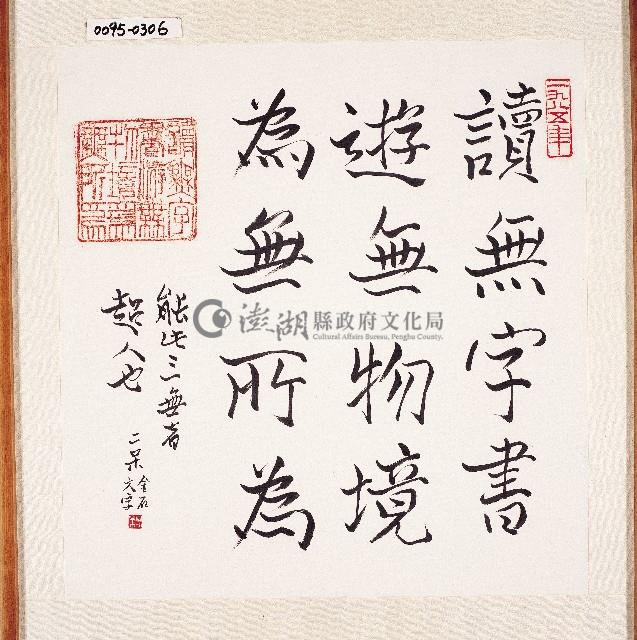 0095-0306
一九八五年
讀無字書
遊無物境
為無所為
能此三無者
超人也
二呆
金石
文字
讀無字
書遊無
物境為
無所為
澎湖縣政府文化局
Cultural Affairs Bureau, Penghu County.